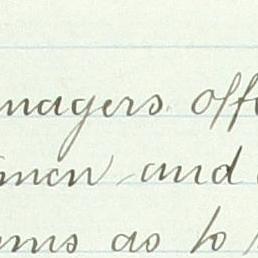 nagers. offe
men and
ms as to